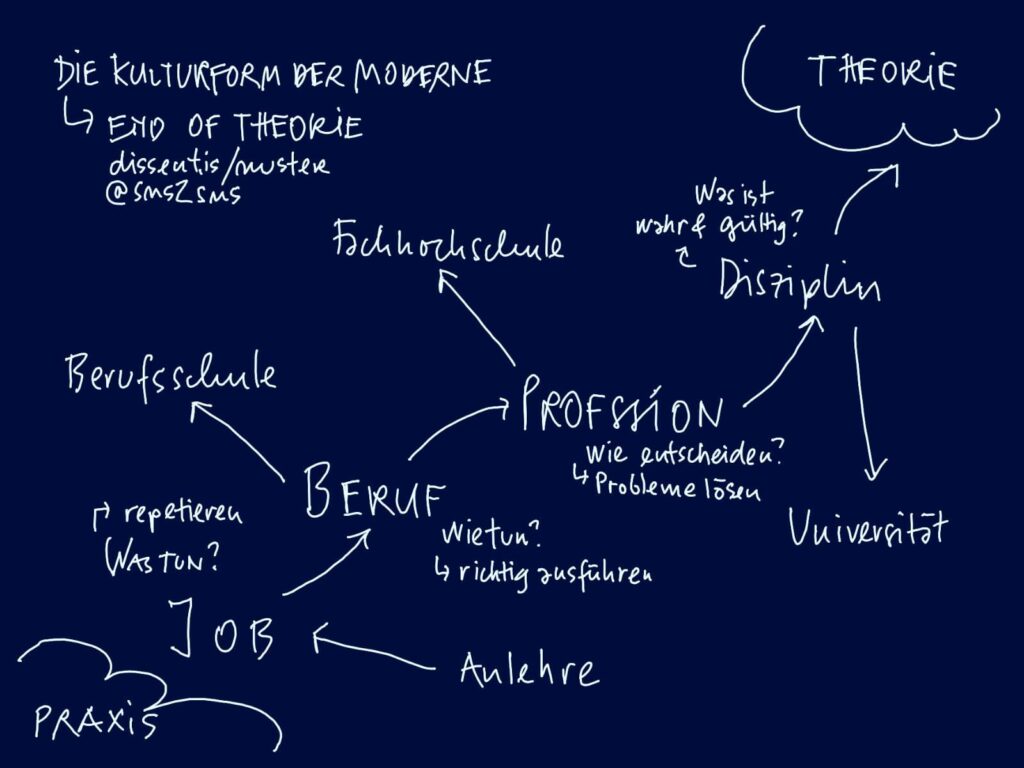 DIE KULTURFORM DER MODERNE
↳ END OF THEORIE
dissent.is/muster
@sms2sms
THEORIE
Was ist
wahr & gültig?
Disziplin
Fachhochschule
Berufsschule
PROFSSION
Wie entscheiden?
↳ Probleme lösen
BERUF
repetieren
WAS TUN?
Wie tun?
↳ richtig ausführen
Universität
JOB
Anlehre
PRAXIS